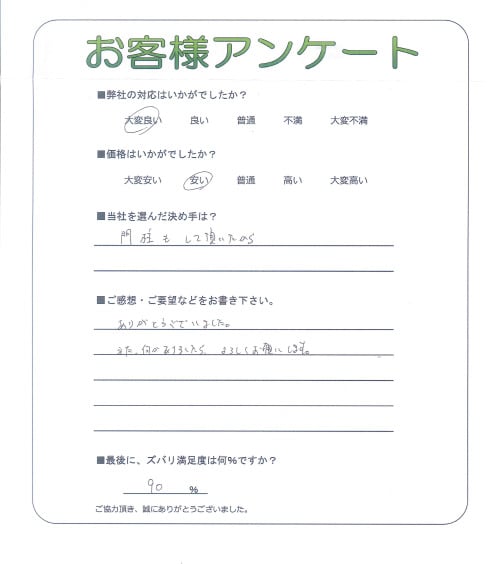 お客様アンケート
■弊社の対応はいかがでしたか？
大変良い 良い 普通 不満 大変不満
■価格はいかがでしたか？
大変安い 安い 普通 高い 大変高い
■当社を選んだ決め手は？
門柱も して頂いたから
■ご感想・ご要望などをお書き下さい。
ありがとうございました。
また、何かありましたら、よろしくお願いします。
■最後に、ズバリ満足度は何%ですか？
90 %
ご協力頂き、誠にありがとうございました。